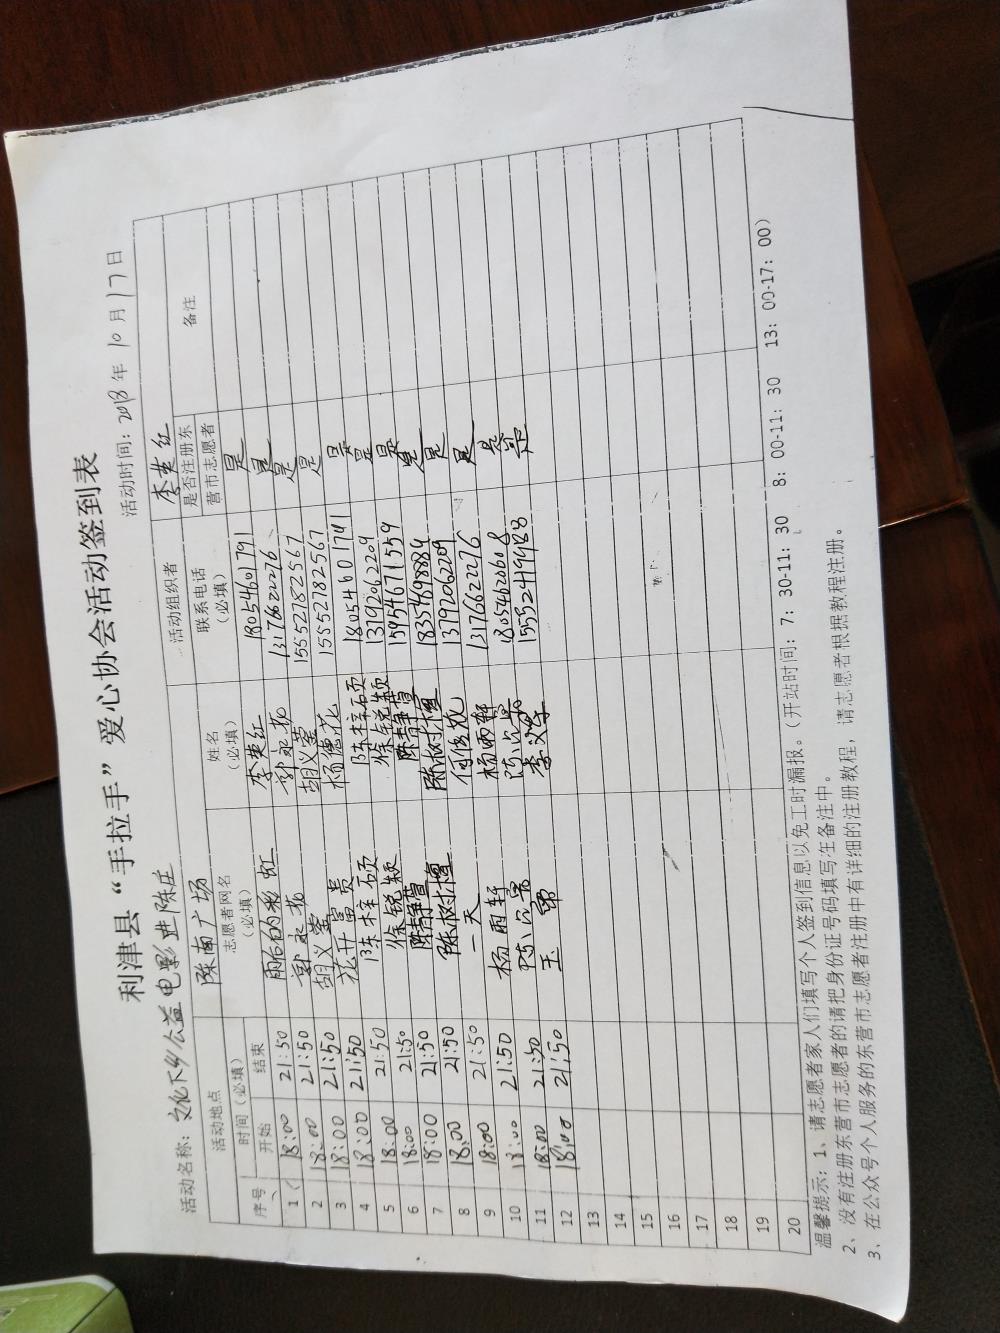 利津县“手拉手”爱心协会活动签到表
活动名称：文化下乡公益电影进陈庄 活动时间：2018年10月17日
活动地点 陈南广场 活动组织者 李英红
序号 时间（必填） 志愿者网名（必填） 姓名（必填） 联系电话（必填） 是否注册东营市志愿者 备注
开始 结束
1 18:00 21:50 雨后的彩虹 李英红 18054601791 是
2 18:00 21:50 郭永花 郭永花 13176622276 是
3 18:00 21:50 胡义蓥 胡义蓥 15552782567 是
4 18:00 21:50 花开富贵 杨德花 15552782567 是
5 18:00 21:50 陈梓硕 陈梓硕 18054601741 是
6 18:00 21:50 徐锐颖 徐锐颖 13792062209 是
7 18:00 21:50 陈静萱 陈静萱 15954671559 是
8 18:00 21:50 陈树檀 陈树檀 18354698884 是
9 18:00 21:50 一天 13792062209 是
10 18:00 21:50 杨雨轩 杨雨轩 13176622276 是
11 18:00 21:50 18054620608 是
12 18:00 21:50 15552419488
13
14
15
16
17
18
19
20
温馨提示：1、请志愿者家人们填写个人签到信息以免工时漏报。（开站时间：7：30-11：30 8：00-11：30 13：00-17：00）
2、没有注册东营市志愿者的请把身份证号码填写在备注中。
3、在公众号个人服务的东营市志愿者注册中有详细的注册教程，请志愿者根据教程注册。